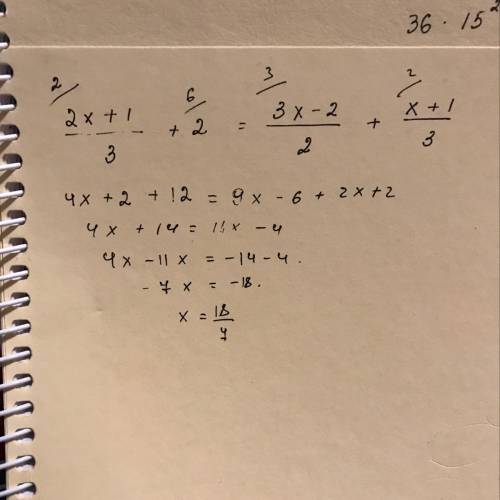 36 · 15²
2/ 6/ 3/ 2/
(2x+1)/3 + 2 = (3x-2)/2 + (x+1)/3
4x+2 +12 = 9x -6 + 2x+2
4x +14 = 11x -4
4x -11x = -14 -4.
-7x = -18.
x = 18/7